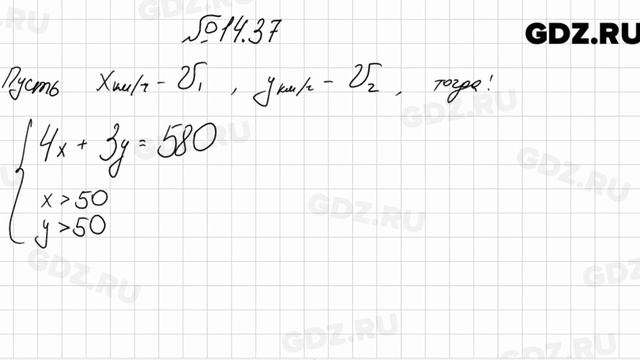 №14.37
GDZ.RU
Пусть x км/ч - V₁, y км/ч - V₂, тогда:
4x + 3y = 580
x > 50
y > 50
GDZ.RU
GDZ.RU
GDZ.RU
GDZ.RU
GDZ.RU
GDZ.RU
GDZ.RU
GDZ.RU
GDZ.RU